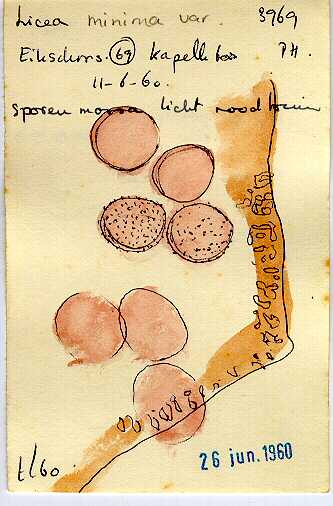 Licea minima var. 3969
Eikschors. 69 Kapelle bos PH.
11-6-60.
Sporen massa licht roodbruin
t/60.
26 jun. 1960